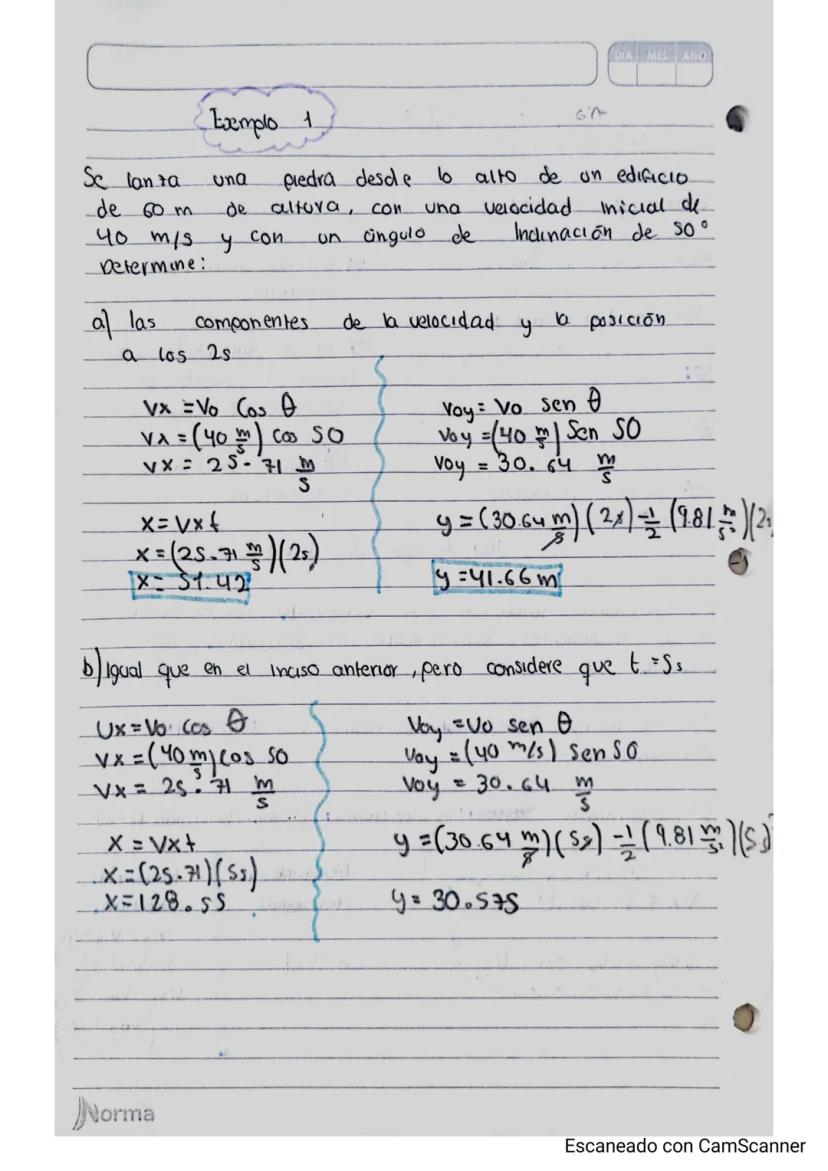 DIA MES AÑO
Exemplo 1
Se lanza una piedra desde lo alto de un edificio
de 60 m de altura, con una velocidad inicial de
40 m/s y con un ángulo de Inclinación de 50°
Determine:
a) las componentes de la velocidad y la posición
a los 2s
Vx = Vo Cos θ
Vx = (40 m/s) cos 50
Vx = 25.71 m/s
X = Vx t
X = (25.71 m/s)(2s)
X = 51.42
Voy = Vo sen θ
Voy = (40 m/s) Sen 50
Voy = 30.64 m/s
y = (30.64 m/s)(2s) - 1/2 (9.81 m/s²)(2s
y = 41.66 m
b) Igual que en el inciso anterior, pero considere que t = 5s
Ux = Vo cos θ
Vx = (40 m/s) cos 50
Vx = 25.71 m/s
X = Vx t
X = (25.71)(5s)
X = 128.55
Voy = Vo sen θ
Voy = (40 m/s) Sen 50
Voy = 30.64 m/s
y = (30.64 m/s)(5s) - 1/2 (9.81 m/s²)(5s)
y = 30.575
Norma
Escaneado con CamScanner